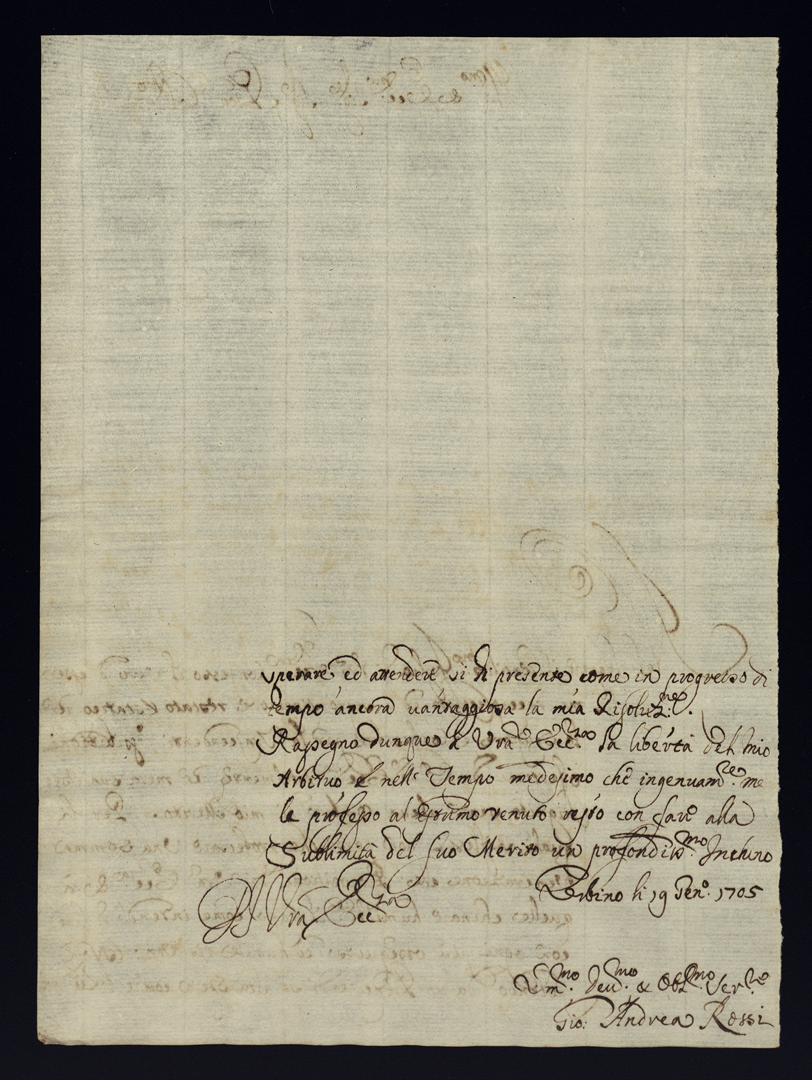 sperare ed attendere si di presente come in progresso di
tempo ancora vantaggiosa la mia Risoluz.ne
Rassegno dunque à Vrã Ecc.za la libertà del mio
Arbitrio e nell Tempo medesimo che ingenuam.te me
le professo al primo venuto resto con fare alla
Sublimità del suo Merito un profondiss.mo Inchino
Urbino li 19 Gen.o 1705
D V rã Ecc.za
Um.mo Deu.mo & Obl.mo Ser.re
Gio: Andrea Rossi